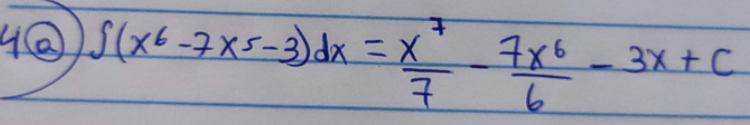 4(a) ∫(x⁶-7x⁵-3)dx = x⁷/7 - 7x⁶/6 - 3x + C